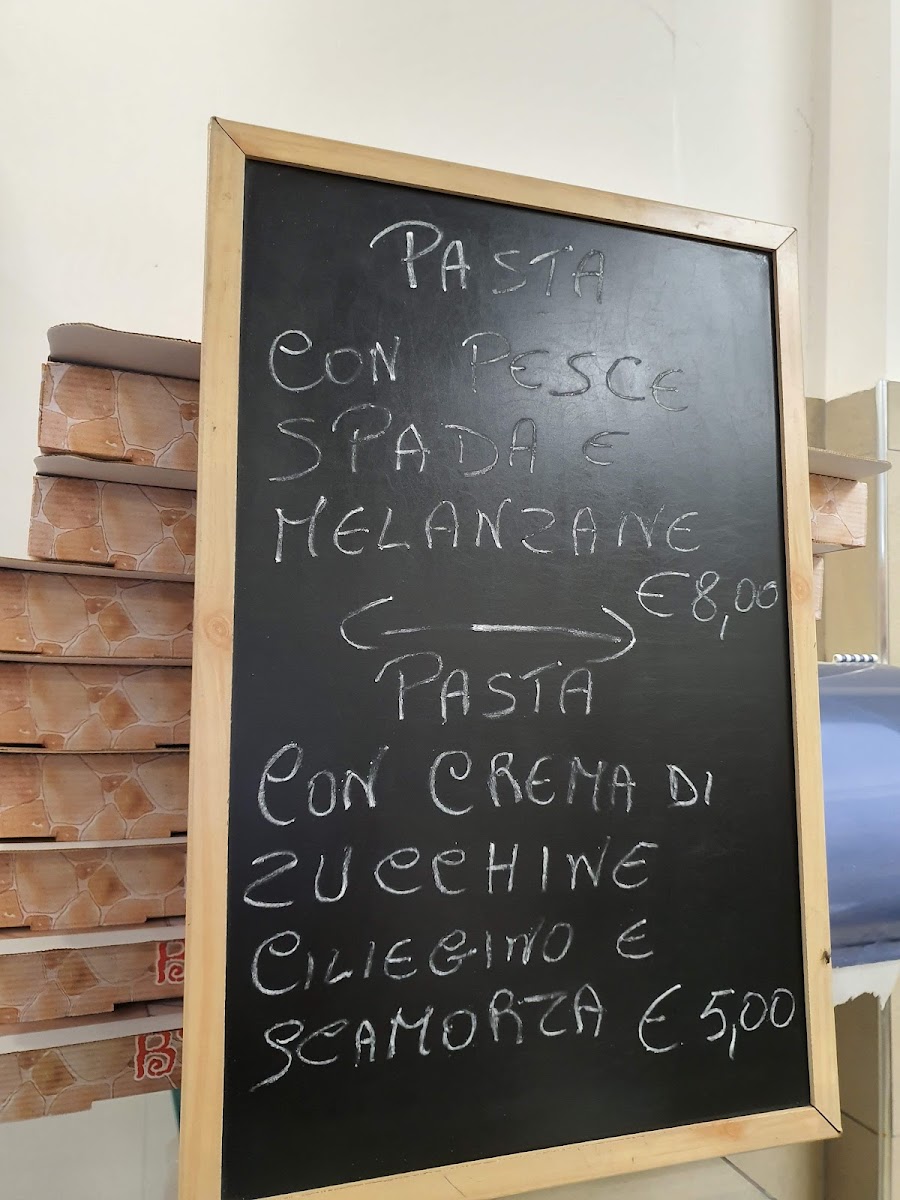 PASTA
CON PESCE
SPADA E
MELANZANE
€ 8,00
PASTA
CON CREMA DI
ZUCCHINE
CILIEGINO E
SCAMORZA € 5,00